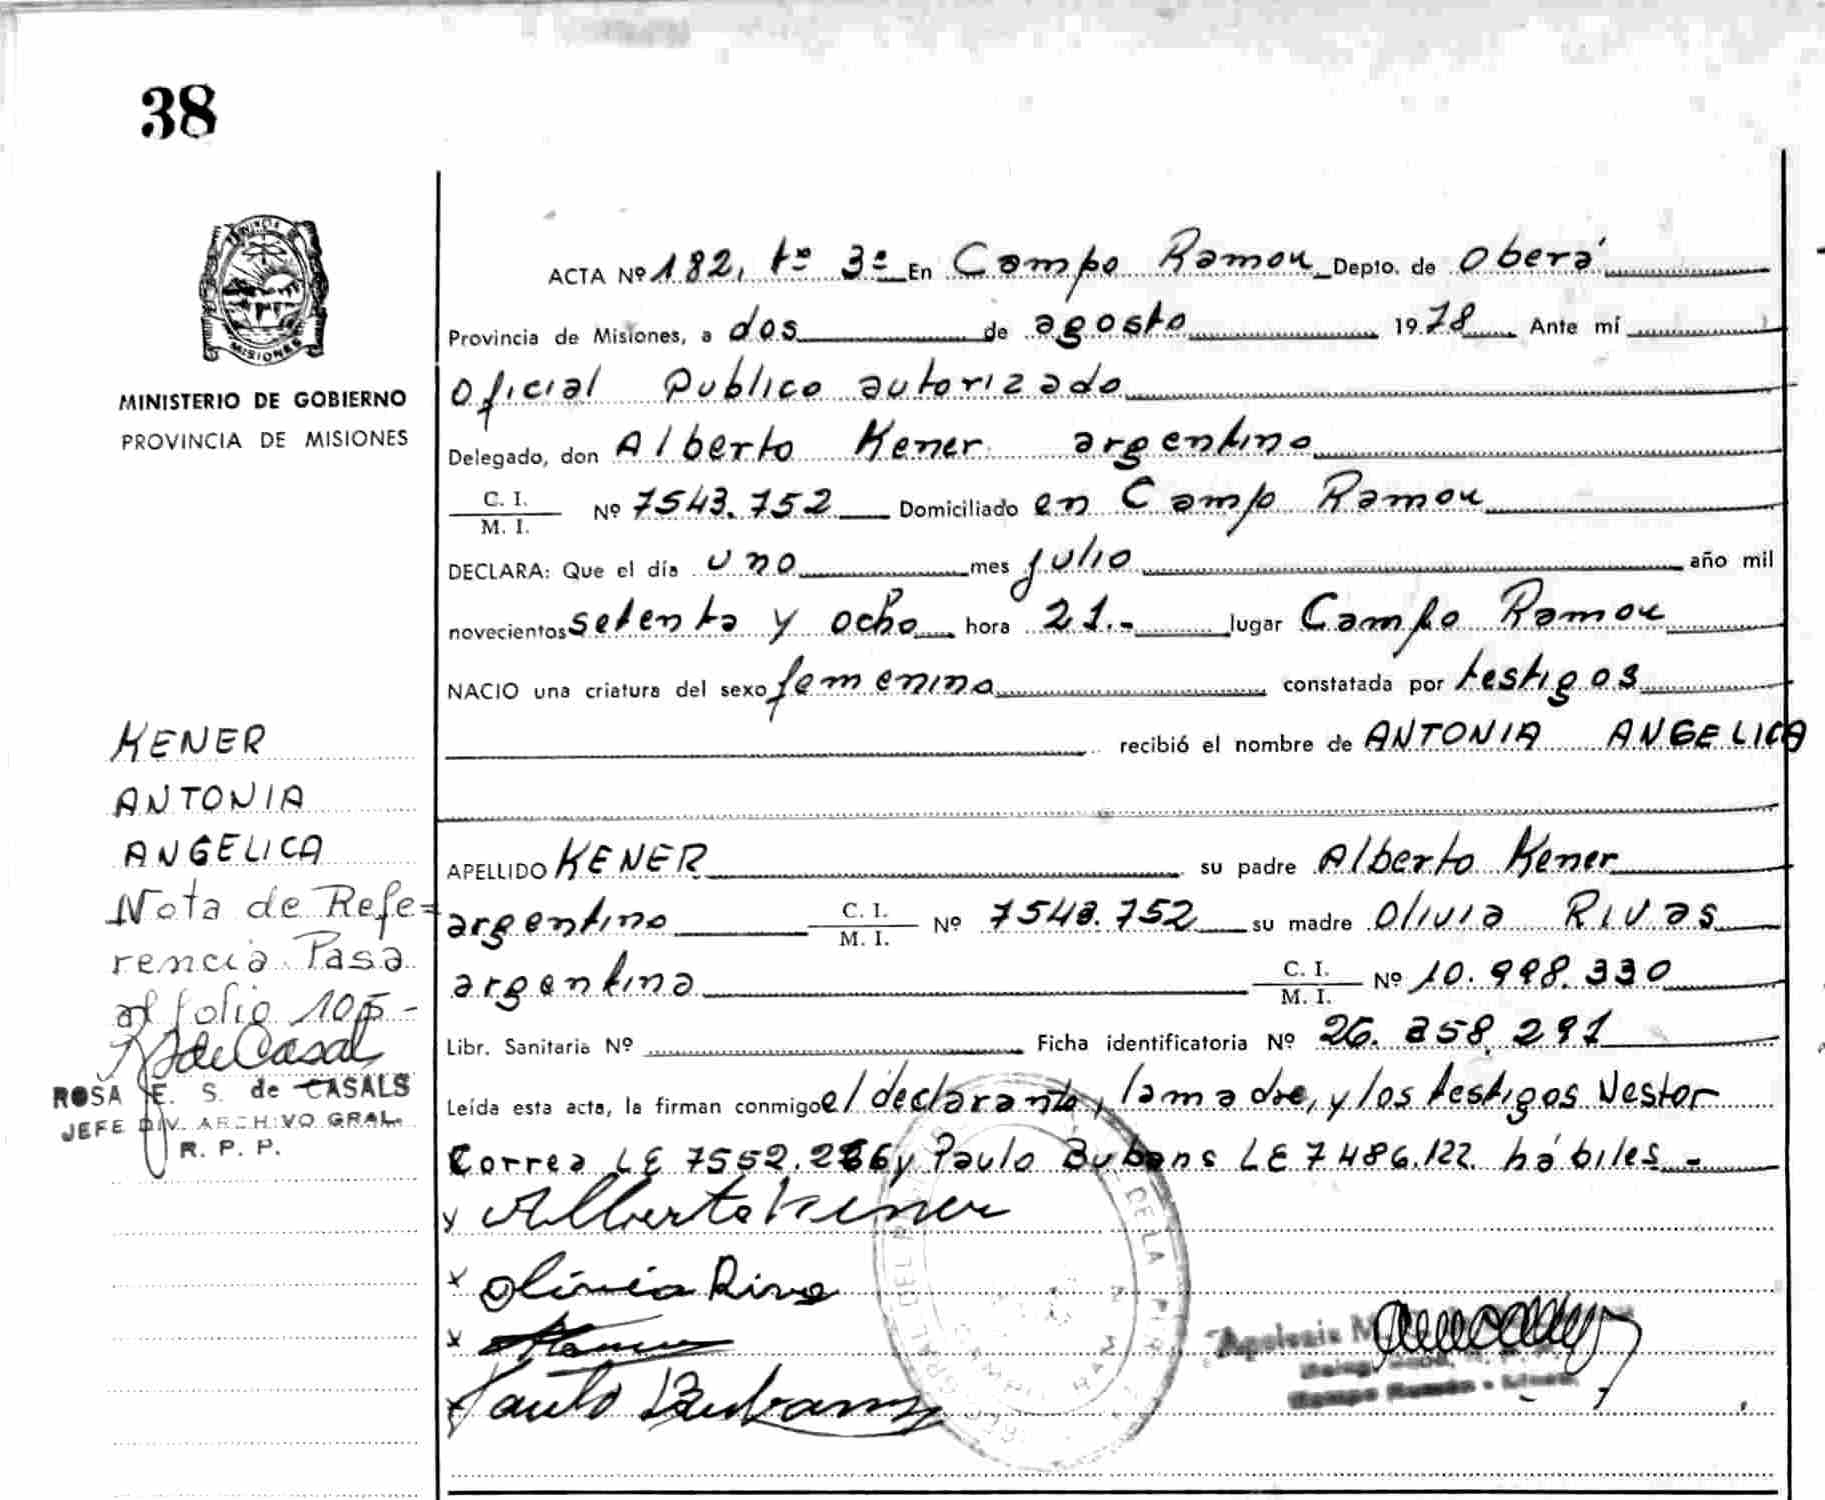 38
MISIONES
MINISTERIO DE GOBIERNO
PROVINCIA DE MISIONES
ACTA Nº 182, tº 3º En Campo Ramon Depto. de Oberá
Provincia de Misiones, a dos de agosto 1978 Ante mí
Oficial Publico autorizado
Delegado, don Alberto Kener argentino
C. I.
M. I. Nº 7543.752 Domiciliado en Campo Ramon
DECLARA: Que el día uno mes julio año mil
novecientos setenta y ocho hora 21.- lugar Campo Ramon
NACIO una criatura del sexo femenino constatada por testigos
recibió el nombre de ANTONIA ANGELICA
APELLIDO KENER su padre Alberto Kener
argentino C. I.
M. I. Nº 7543.752 su madre Olivia Rivas
argentina C. I.
M. I. Nº 10.998.330
Libr. Sanitaria Nº Ficha identificatoria Nº 26.858.291
Leída esta acta, la firman conmigo el declarante, la madre, y los testigos Nestor
Correa LE 7552. y Paulo Bubans LE 7486.122 hábiles -
x Alberto Kener
x Olivia Riva
x
x Paulo Bubans
KENER
ANTONIA
ANGELICA
Nota de Refe=
rencia Pasa
al folio 105-
R S de Casal
ROSA E. S. de CASALS
JEFE DIV. ARCHIVO GRAL.
R. P. P.